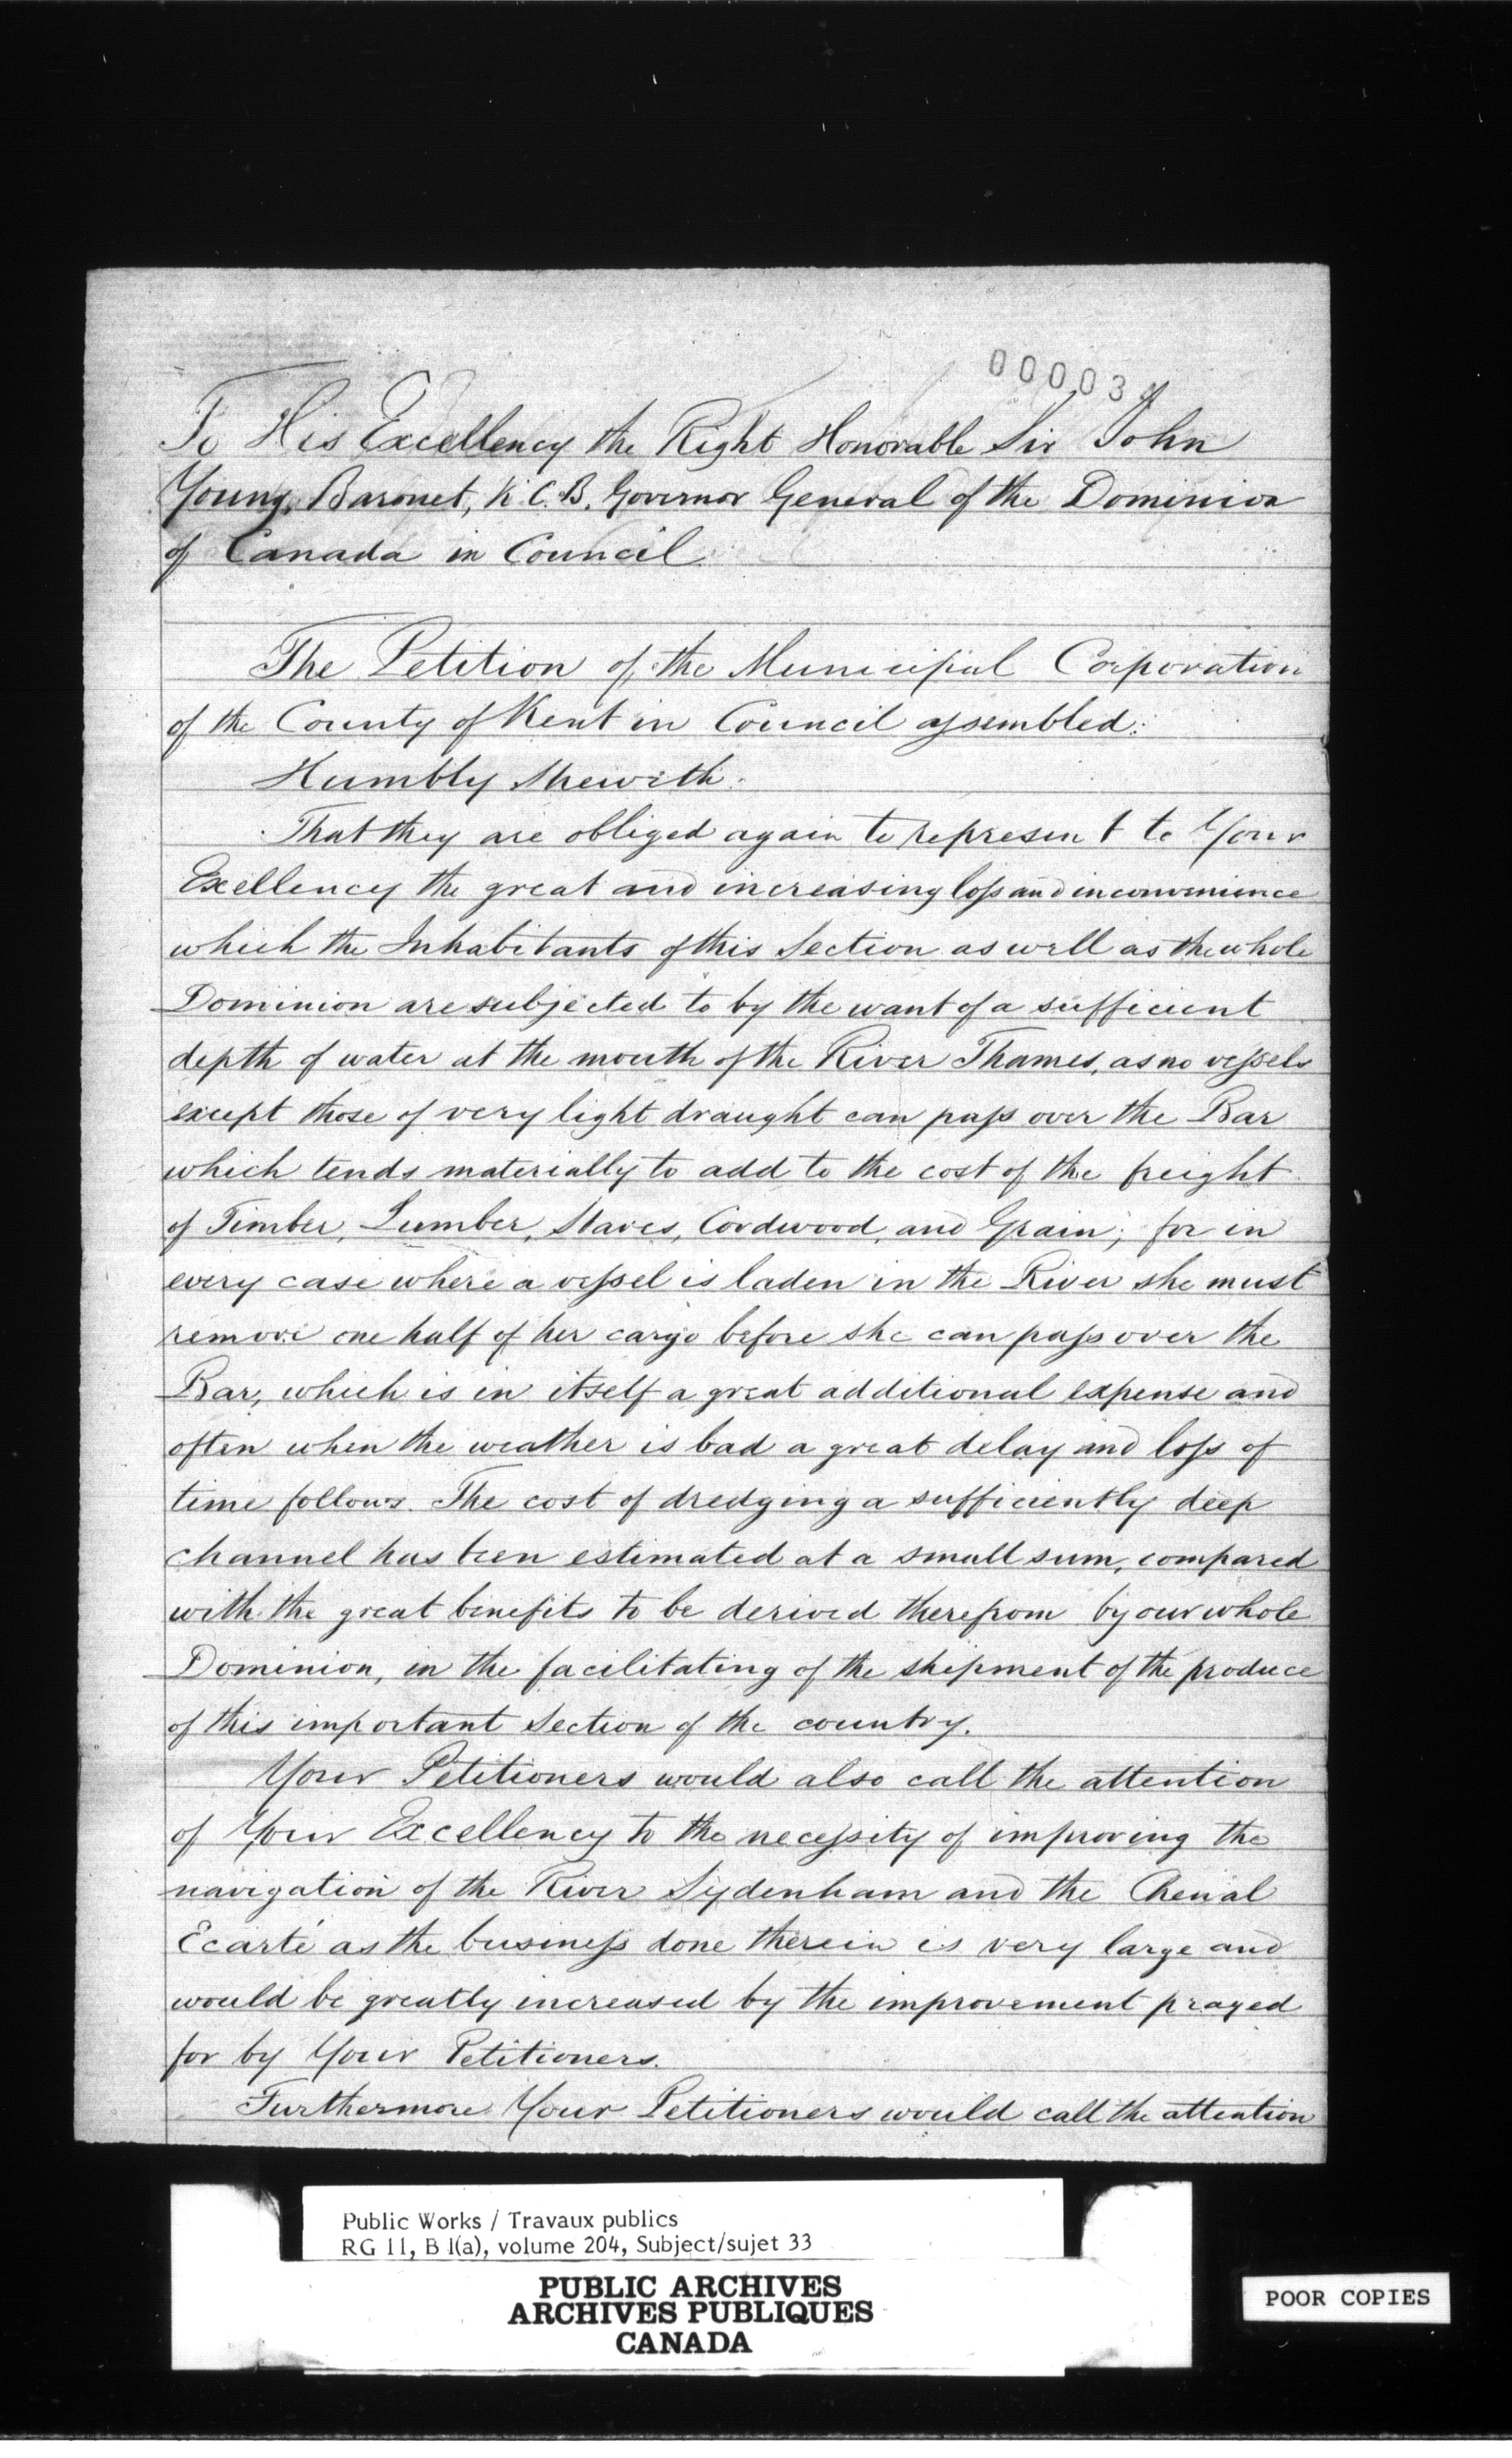 00003
To His Excellency the Right Honorable Sir John
Young, Baronet, K.C.B. Governor General of the Dominion
of Canada in Council.
The Petition of the Municipal Corporation
of the County of Kent in Council assembled:
Humbly Sheweth:
That they are obliged again to represent to Your
Excellency the great and increasing loss and inconvenience
which the Inhabitants of this Section as well as the whole
Dominion are subjected to by the want of a sufficient
depth of water at the mouth of the River Thames, as no vessels
except those of very light draught can pass over the Bar
which tends materially to add to the cost of the freight
of Timber, Lumber, Staves, Cordwood, and Grain; for in
every case where a vessel is laden in the River she must
remove one half of her cargo before she can pass over the
Bar, which is in itself a great additional expense and
often when the weather is bad a great delay and loss of
time follows. The cost of dredging a sufficiently deep
channel has been estimated at a small sum, compared
with the great benefits to be derived therefrom by our whole
Dominion, in the facilitating of the shipment of the produce
of this important Section of the country.
Your Petitioners would also call the attention
of Your Excellency to the necessity of improving the
navigation of the River Sydenham and the Chenal
Ecarté as the business done therein is very large and
would be greatly increased by the improvement prayed
for by Your Petitioners.
Furthermore Your Petitioners would call the attention
Public Works / Travaux publics
RG 11, B 1(a), volume 204, Subject/sujet 33
PUBLIC ARCHIVES
ARCHIVES PUBLIQUES
CANADA
POOR COPIES